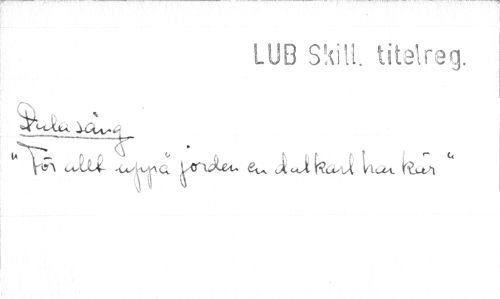 LUB Skill. titelreg.
Dalasång
"För allt uppå jorden en dalkarl har kär"